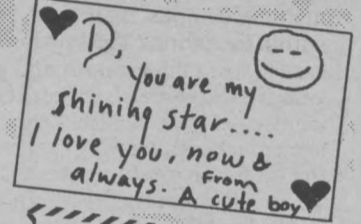 D,
You are my
shining star....
I love you, now &
always. From
A cute boy